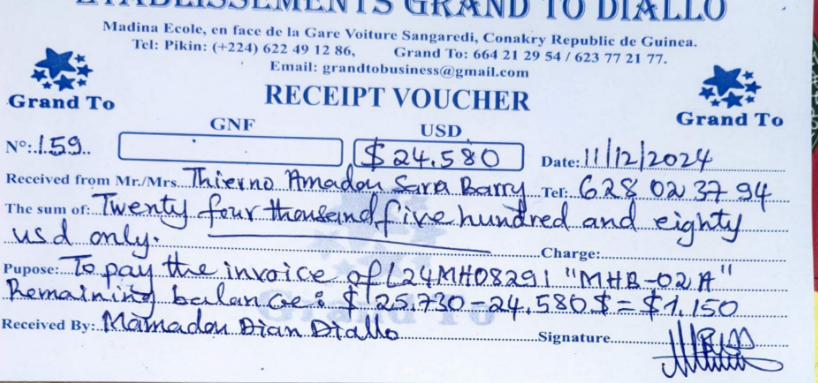 ETABLISSEMENTS GRAND TO DIALLO
Madina Ecole, en face de la Gare Voiture Sangaredi, Conakry Republic de Guinea.
Tel: Pikin: (+224) 622 49 12 86, Grand To: 664 21 29 54 / 623 77 21 77.
Email: grandtobusiness@gmail.com
Grand To RECEIPT VOUCHER Grand To
GNF USD
N°:.159.. $24.580 Date: 11/12/2024
Received from Mr./Mrs. Thierno Amadou Sara Barry Tel: 628 02 37 94
The sum of: Twenty four thousand five hundred and eighty
usd only. Charge:
Pupose: To pay the invoice of L24MH08291 "MHB-02A"
Remaining balance: $25.730-24.580$=$1.150
Received By: Mamadou Dian Diallo Signature